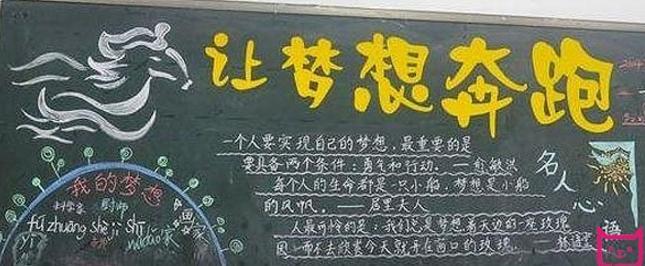 让梦想奔跑
一个人要实现自己的梦想，最重要的是
要具备两个条件：勇气和行动。——俞敏洪
每个人的生命都是一只小船，梦想是小船
的风帆。——居里夫人
人最可怜的是：我们总是梦想着天边的一座玫瑰
因而不去欣赏今天就开在窗口的玫瑰。
名人心语
我的梦想
科学家 厨师
fú zhuāng shè jì shī
画家